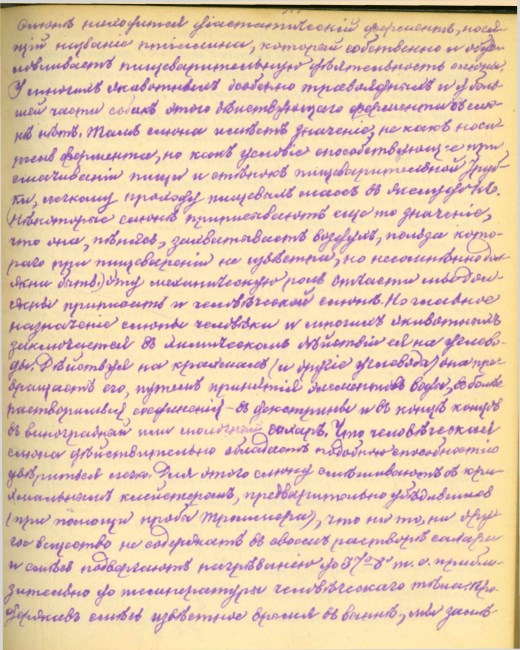 слюнѣ находится діастатическій ферментъ, нося-
щій названіе птіалина, который собственно и обус-
ловливаетъ пищеварительную дѣятельность слюны.
У многихъ животныхъ особенно травоядныхъ и у боль-
шей части собакъ этого дѣйствующаго фермента въ слю-
нѣ нѣтъ. Тамъ слюна имѣетъ значеніе, не какъ носи-
тель фермента, но какъ условіе способствующее при
смачиваніи пищи и стѣнокъ пищеварительной труб-
ки, легкому проходу пищевыхъ массъ въ желудокъ.
Нѣкоторые слюнѣ приписываютъ еще то значеніе,
что она, пѣнясь, захватываетъ воздухъ, польза кото-
раго при пищевареніи не извѣстна, но несомнѣнно дол-
жна быть. Эту механическую роль отчасти мы дол-
жны приписать и человѣческой слюнѣ. Но главное
назначеніе слюны человѣка и многихъ животныхъ
заключается въ химическомъ дѣйствіи ея на углево-
ды. Дѣйствуя на крахмалъ (и другіе углеводы) она пре-
вращаетъ его, путемъ принятія элементовъ воды, въ болѣе
растворимыя соединенія - въ декстрины и въ концѣ концовъ
въ виноградный или солодовый сахаръ. Что человѣческая
слюна дѣйствительно обладаетъ подобною способностію
увѣриться легко. Для этого слюну смѣшиваютъ съ кра-
хмальнымъ клейстеромъ, предварительно убѣдившись
(при помощи пробы Троммера), что ни то, ни дру-
гое вещество не содержатъ въ своемъ растворѣ сахара
и смѣсь подвергаютъ нагрѣванію до 37°-8° т. е. прибли-
зительно до температуры человѣческаго тѣла. Про-
державъ смѣсь извѣстное время въ ваннѣ, мы замѣ-